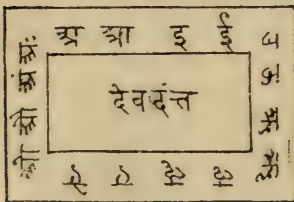 अ आ इ ई
उ ऊ ऋ ॠ
ऌ ॡ ए ऐ
ओ औ अं अः
देवदंत्त